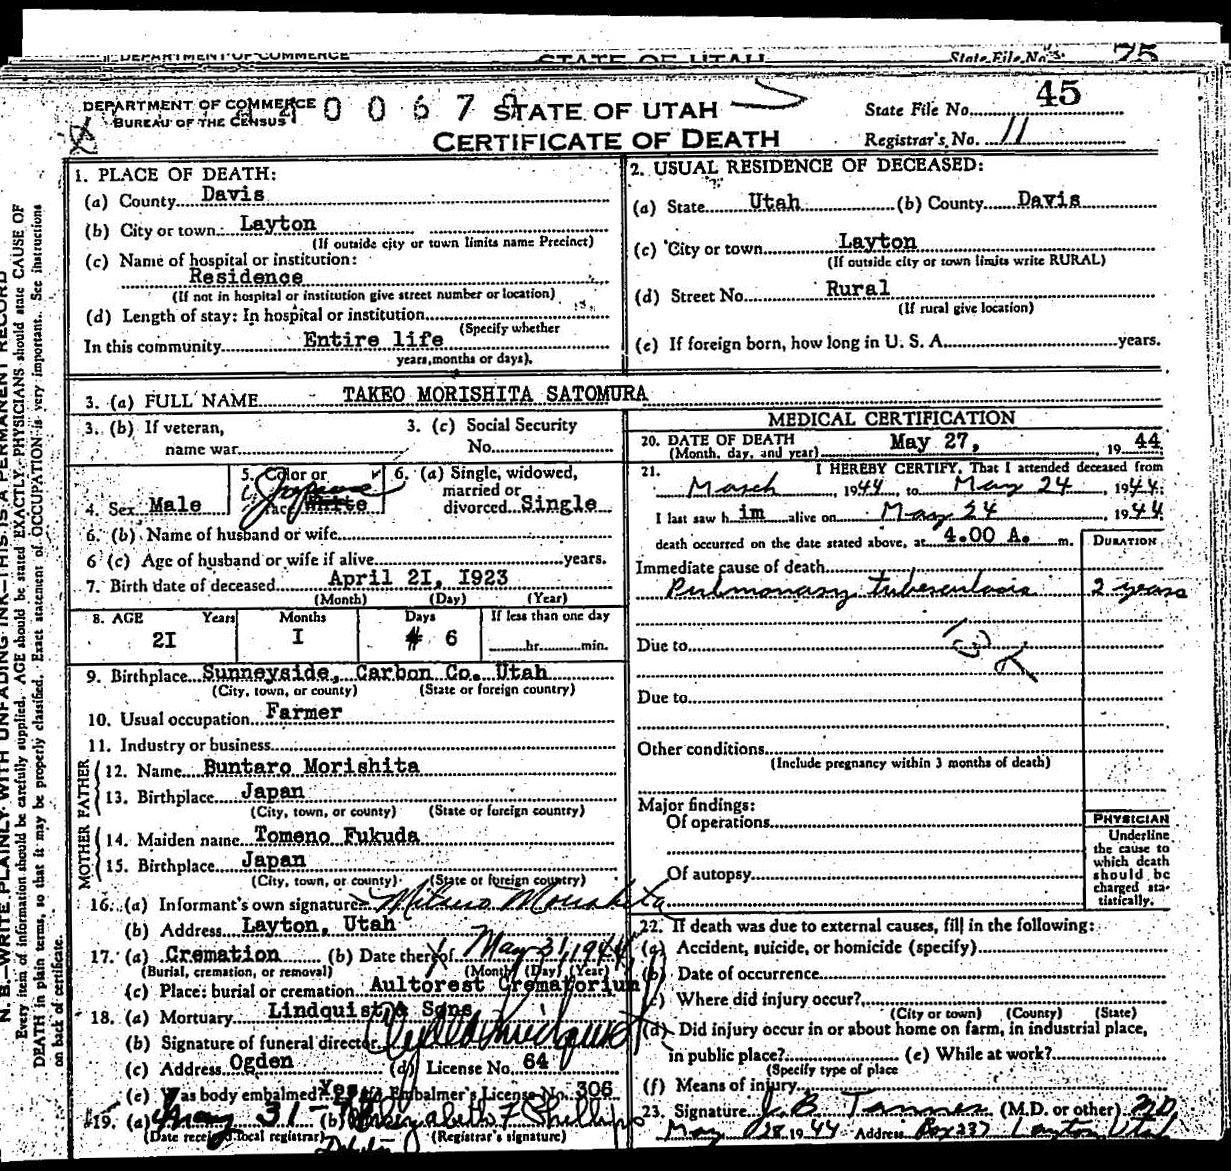 DEPARTMENT OF COMMERCE STATE OF UTAH State File No. 75
DEPARTMENT OF COMMERCE 0 0 6 7 STATE OF UTAH State File No. 45
BUREAU OF THE CENSUS CERTIFICATE OF DEATH Registrar's No. 11
1. PLACE OF DEATH:
(a) County Davis
(b) City or town Layton
(If outside city or town limits name Precinct)
(c) Name of hospital or institution:
Residence
(If not in hospital or institution give street number or location)
(d) Length of stay: In hospital or institution
(Specify whether
In this community Entire life
years, months or days).
2. USUAL RESIDENCE OF DECEASED:
(a) State Utah (b) County Davis
(c) City or town Layton
(If outside city or town limits write RURAL)
(d) Street No. Rural
(If rural give location)
(e) If foreign born, how long in U. S. A. years.
3. (a) FULL NAME TAKEO MORISHITA SATOMURA
3. (b) If veteran, 3. (c) Social Security
name war No.
4. Sex Male 5. Color or race White Japanese 6. (a) Single, widowed, married or divorced Single
6. (b) Name of husband or wife
6 (c) Age of husband or wife if alive years.
7. Birth date of deceased April 2I, I923
(Month) (Day) (Year)
8. AGE Years Months Days If less than one day
2I I 6 hr. min.
9. Birthplace Sunneyside, Carbon Co. Utah
(City, town, or county) (State or foreign country)
10. Usual occupation Farmer
11. Industry or business
FATHER
12. Name Buntaro Morishita
13. Birthplace Japan
(City, town, or county) (State or foreign country)
MOTHER
14. Maiden name Tomeno Fukuda
15. Birthplace Japan
(City, town, or county) (State or foreign country)
16. (a) Informant's own signature Mitsuo Morishita
(b) Address Layton, Utah
17. (a) Cremation (b) Date thereof May 31, 1944
(Burial, cremation, or removal) (Month) (Day) (Year)
(c) Place: burial or cremation Aultorest Crematorium
18. (a) Mortuary Lindquist & Sons
(b) Signature of funeral director
(c) Address Ogden (d) License No. 64
(e) Was body embalmed? Yes (f) Embalmer's License No. 306
19. (a) May 31-44 (b) Elizabeth F Phillips
(Date received local registrar) (Registrar's signature)
MEDICAL CERTIFICATION
20. DATE OF DEATH May 27, 19 44
(Month, day, and year)
21. I HEREBY CERTIFY, That I attended deceased from
March, 1944, to May 24, 1944
I last saw h im alive on May 24, 1944
death occurred on the date stated above, at 4.00 A. m. DURATION
Immediate cause of death
Pulmonary tuberculosis 2 years
Due to
Due to
Other conditions
(Include pregnancy within 3 months of death)
Major findings:
Of operations
Of autopsy
PHYSICIAN
Underline
the cause to
which death
should be
charged sta-
tistically.
22. If death was due to external causes, fill in the following:
(a) Accident, suicide, or homicide (specify)
(b) Date of occurrence
(c) Where did injury occur?
(City or town) (County) (State)
(d) Did injury occur in or about home on farm, in industrial place,
in public place? (e) While at work?
(Specify type of place
(f) Means of injury
23. Signature J. B. Tanner (M.D. or other) M.D.
May 28, 1944 Address Box 237 Layton Utah
N. B.—WRITE PLAINLY WITH UNFADING INK—THIS IS A PERMANENT RECORD
Every item of information should be carefully supplied. AGE should be stated EXACTLY. PHYSICIANS should state CAUSE OF
DEATH in plain terms, so that it may be properly classified. Exact statement of OCCUPATION is very important. See instructions
on back of certificate.